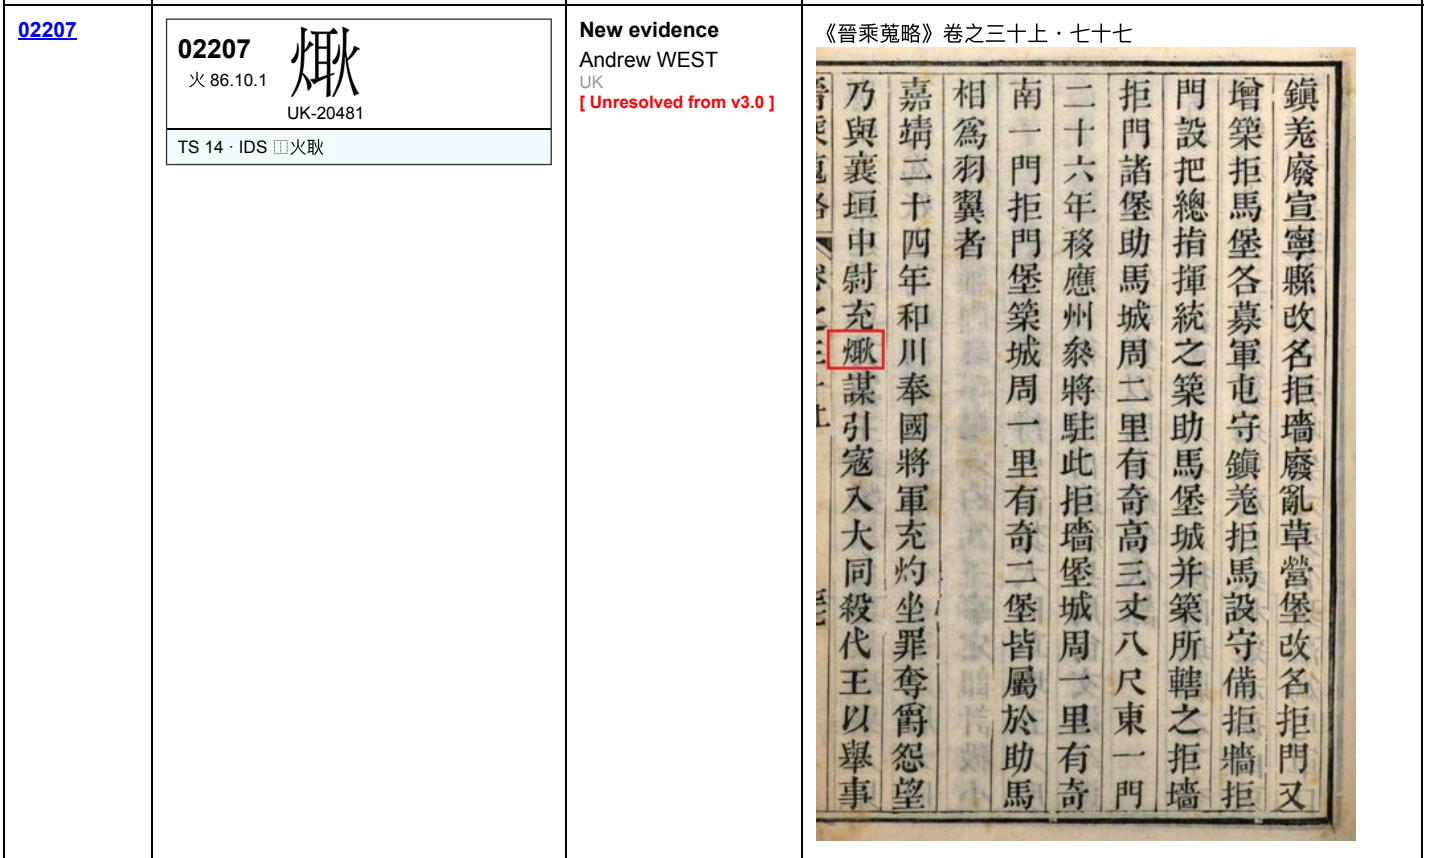 02207
02207
𤋱
火 86.10.1
UK-20481
TS 14 · IDS ⿰火耿
New evidence
Andrew WEST
UK
[ Unresolved from v3.0 ]
《晉乘蒐略》卷之三十上·七十七
鎭羗廢宣寧縣改名拒墻廢亂草營堡改名拒門又
增築拒馬堡各募軍屯守鎭羗拒馬設守備拒牆拒
門設把總指揮統之築助馬堡城并築所轄之拒墻
拒門諸堡助馬城周二里有奇高三丈八尺東一門
二十六年移應州叅將駐此拒墻堡城周一里有奇
南一門拒門堡築城周一里有奇二堡皆屬於助馬
相爲羽翼者
嘉靖二十四年和川奉國將軍充灼坐罪奪爵怨望
乃與襄垣中尉充⿰火耿謀引寇入大同殺代王以舉事